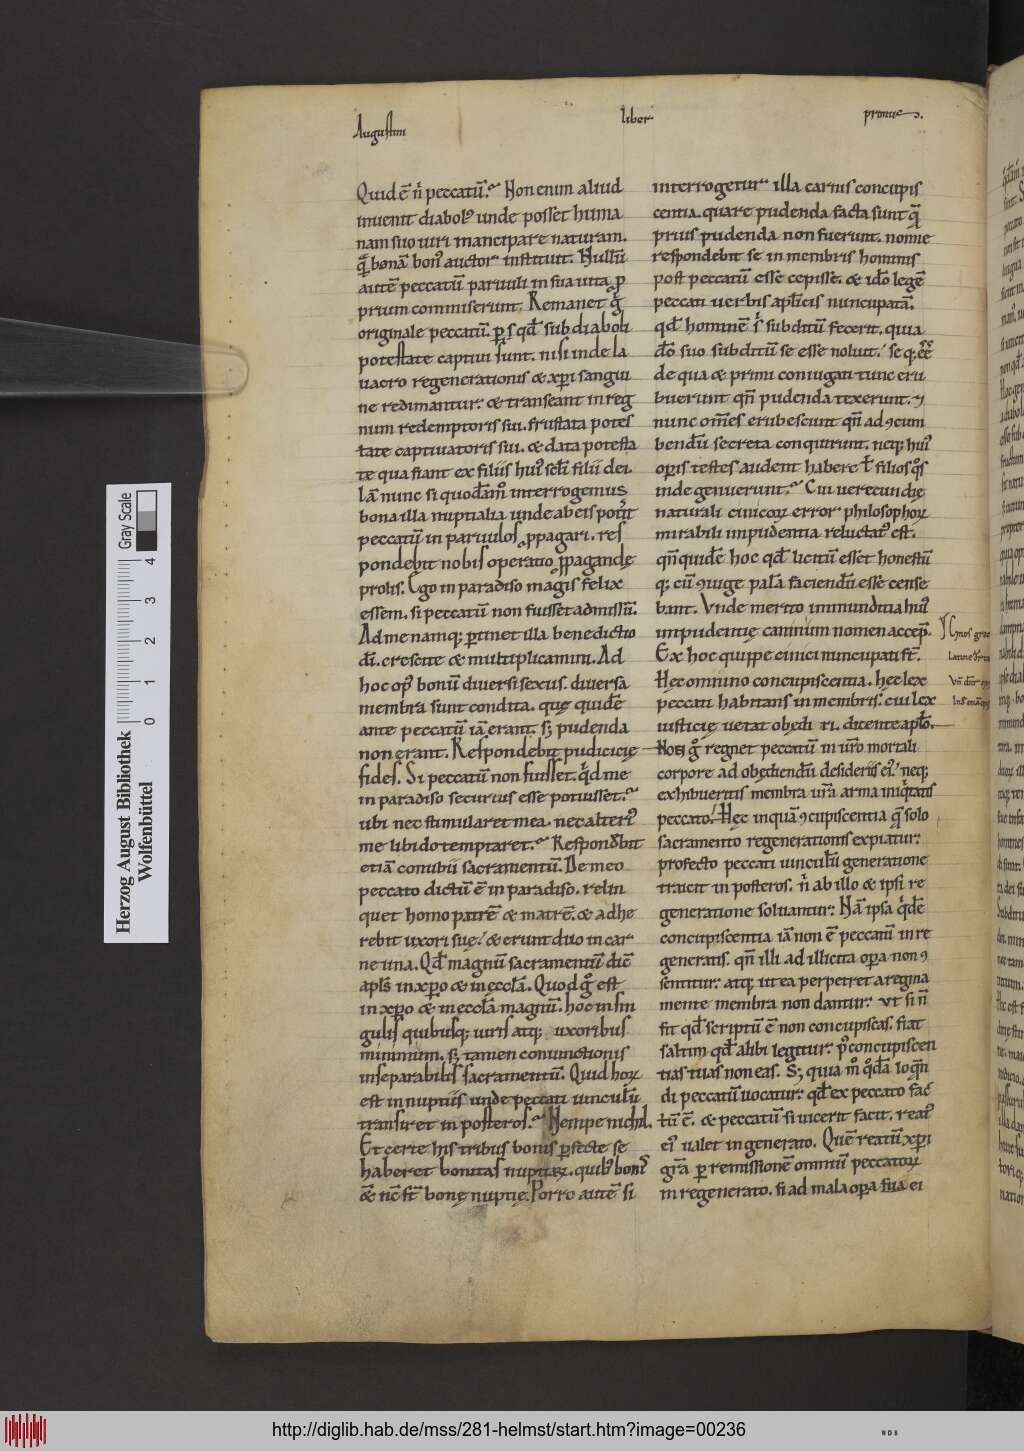 Augustini liber primus.
Quid ē n̄ peccatū? Non enim aliud
inuenit diabolꝰ unde posset huma
nam suo iuri mancipare naturam.
quā bonā bonꝰ auctor instituit. Nullū
autē peccatū paruuli in sua uita ꝓ
prium commiserunt. Remanet gͦ
originale peccatū. ꝑ qd̄ sub diaboli
potestate captiui sunt. nisi inde la
uacro regenerationis & xp̄i sangui
ne redimantur. & transeant in reg
num redemptoris sui. frustata potes
tate captiuatoris sui. & data potesta
te qua fiant ex filiis huiꝰ sc̄li filii dei.
Iā nunc si quodāmͦ interrogemus
bona illa nuptialia unde ab eis potuerit
peccatū in paruulos ꝓpagari. res
pondebit nobis operatio ꝓpagandę
prolis. Ego in paradiso magis felix
essem. si peccatū non fuisset admissū.
Ad me namq; ꝑtinet illa benedictio
dī. crescite & multiplicamini. Ad
hoc opꝰ bonū diuersi sexus. diuersa
membra sunt condita. quę quidē
ante peccatū iā erant. s; pudenda
non erant. Respondebit pudicicię
fides. Si peccatū non fuisset. qͥd me
in paradiso securius esse potuisset?
ubi nec stimularet mea. nec alteriꝰ
me libido temptaret? Respondebit
etiā conubii sacramentū. De meo
peccato dictū ē in paradiso. relin
quet homo patrē & matrē. & adhe
rebit uxori suę. & erunt duo in car
ne una. Qd̄ magnū sacramentū dicē
apls̄ in xp̄o & in ęccl̄a. Quod gͦ est
in xp̄o & in ęccl̄a magnū. hoc in sin
gulis quibusq; uiris atq; uxoribus
minimum. s; tamen coniunctionis
inseparabilis sacramentū. Quid hoꝝ
est in nuptiis unde peccati uinculū
transiret in posteros? Nempe nichil.
Et certe his tribus bonis ꝑfecte se
haberet bonitas nuptiaꝝ. quibꝰ bonis
& nc̄ st̄ bonę nuptię. Porro autē si
interrogetur illa carnis concupis
centia. quare pudenda facta sunt quę
prius pudenda non fuerunt. nonne
respondebit se in membris hominis
post peccatū esse cepisse. & ido legē
peccati uerbis apl̄icis nuncupatā.
qd̄ hominē sͥ subditū fecerit. quia
dō suo subditū se esse noluit. seq; ēē
de qua & primi coniugati tunc eru
buerunt qn̄ pudenda texerunt. &
nunc om̄es erubescunt qn̄ ad ꝯcum
bendū secreta conquirunt. neq; huiꝰ
oꝑis testes audent habere ł filios qͦs
inde genuerunt? Cui uerecundię
naturali cinicoꝝ error philosophoꝝ
mirabili impudentia reluctatꝰ est.
qn̄ quidē hoc qd̄ licitū esset honestū
q; cū ꝯiuge palā faciendū esse cense
bant. Vnde merito immunditia huiꝰ
impudentię caninum nomen accep̄.
Ex hoc quippe cinici nuncupati st̄.
Hęc omnino concupiscentia. hęc lex
peccati habitans in membris. cui lex
iusticię uetat obędiri. dicente aplō.
Non gͦ regnet peccatū in ur̄o mortali
corpore ad obędiendū desideriis eiꝰ. neq;
exhibueritis membra ur̄a arma iniqͥtatis
peccato. Hęc inquā ꝯcupiscentia quę solo
sacramento regenerationis expiatur.
profecto peccati uinculū generatione
traicit in posteros. nͥ ab illo & ipsi re
generatione soluantur. Nā ipsa qͥdē
concupiscentia iā non ē peccatū in re
generatis. qn̄ illi ad illicita oꝑa non ꝯ
sentitur. atq; ut ea perpetret a regina
mente membra non dantur. ut si n̄
fit qd̄ scriptū ē non concupiscas. fiat
saltim qd̄ alibi legitur. pͦ concupiscen
tias tuas non eas. S; quia mͦ qͦdā loquēn
di peccatū uocatur. qd̄ ex peccato fac
tū ē. & peccatū si uicerit facit. reatꝰ
eiꝰ ualet in generato. Quē reatū xp̄i
gr̄a ꝑ remissionē omniū peccatoꝝ
in regenerato. si ad mala oꝑa sua ei
Herzog August Bibliothek
Wolfenbüttel
Gray Scale
0 1 2 3 4
http://diglib.hab.de/mss/281-helmst/start.htm?image=00236